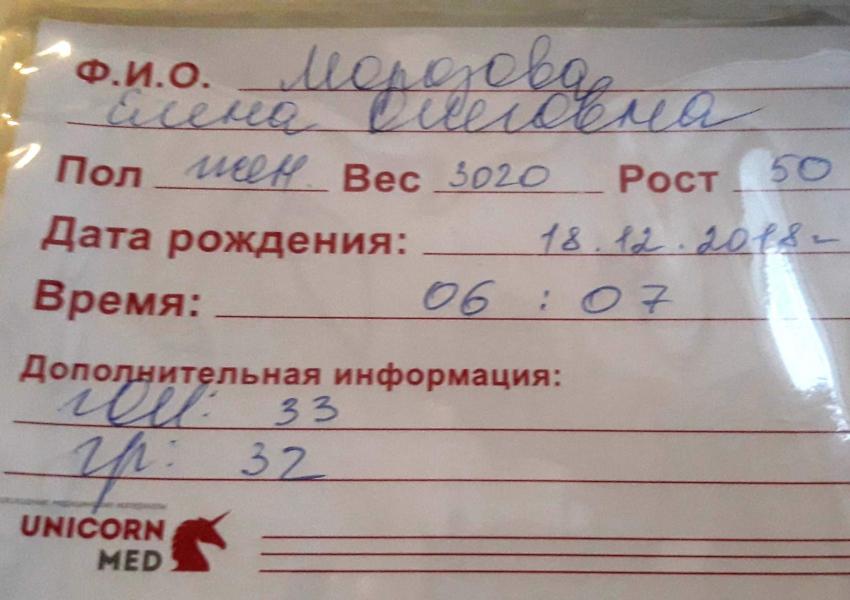 Ф.И.О. Морозова
Елена Олеговна
Пол жен. Вес 3020 Рост 50
Дата рождения: 18.12.2018г
Время: 06 : 07
Дополнительная информация:
гол: 33
гр: 32
UNICORN
MED